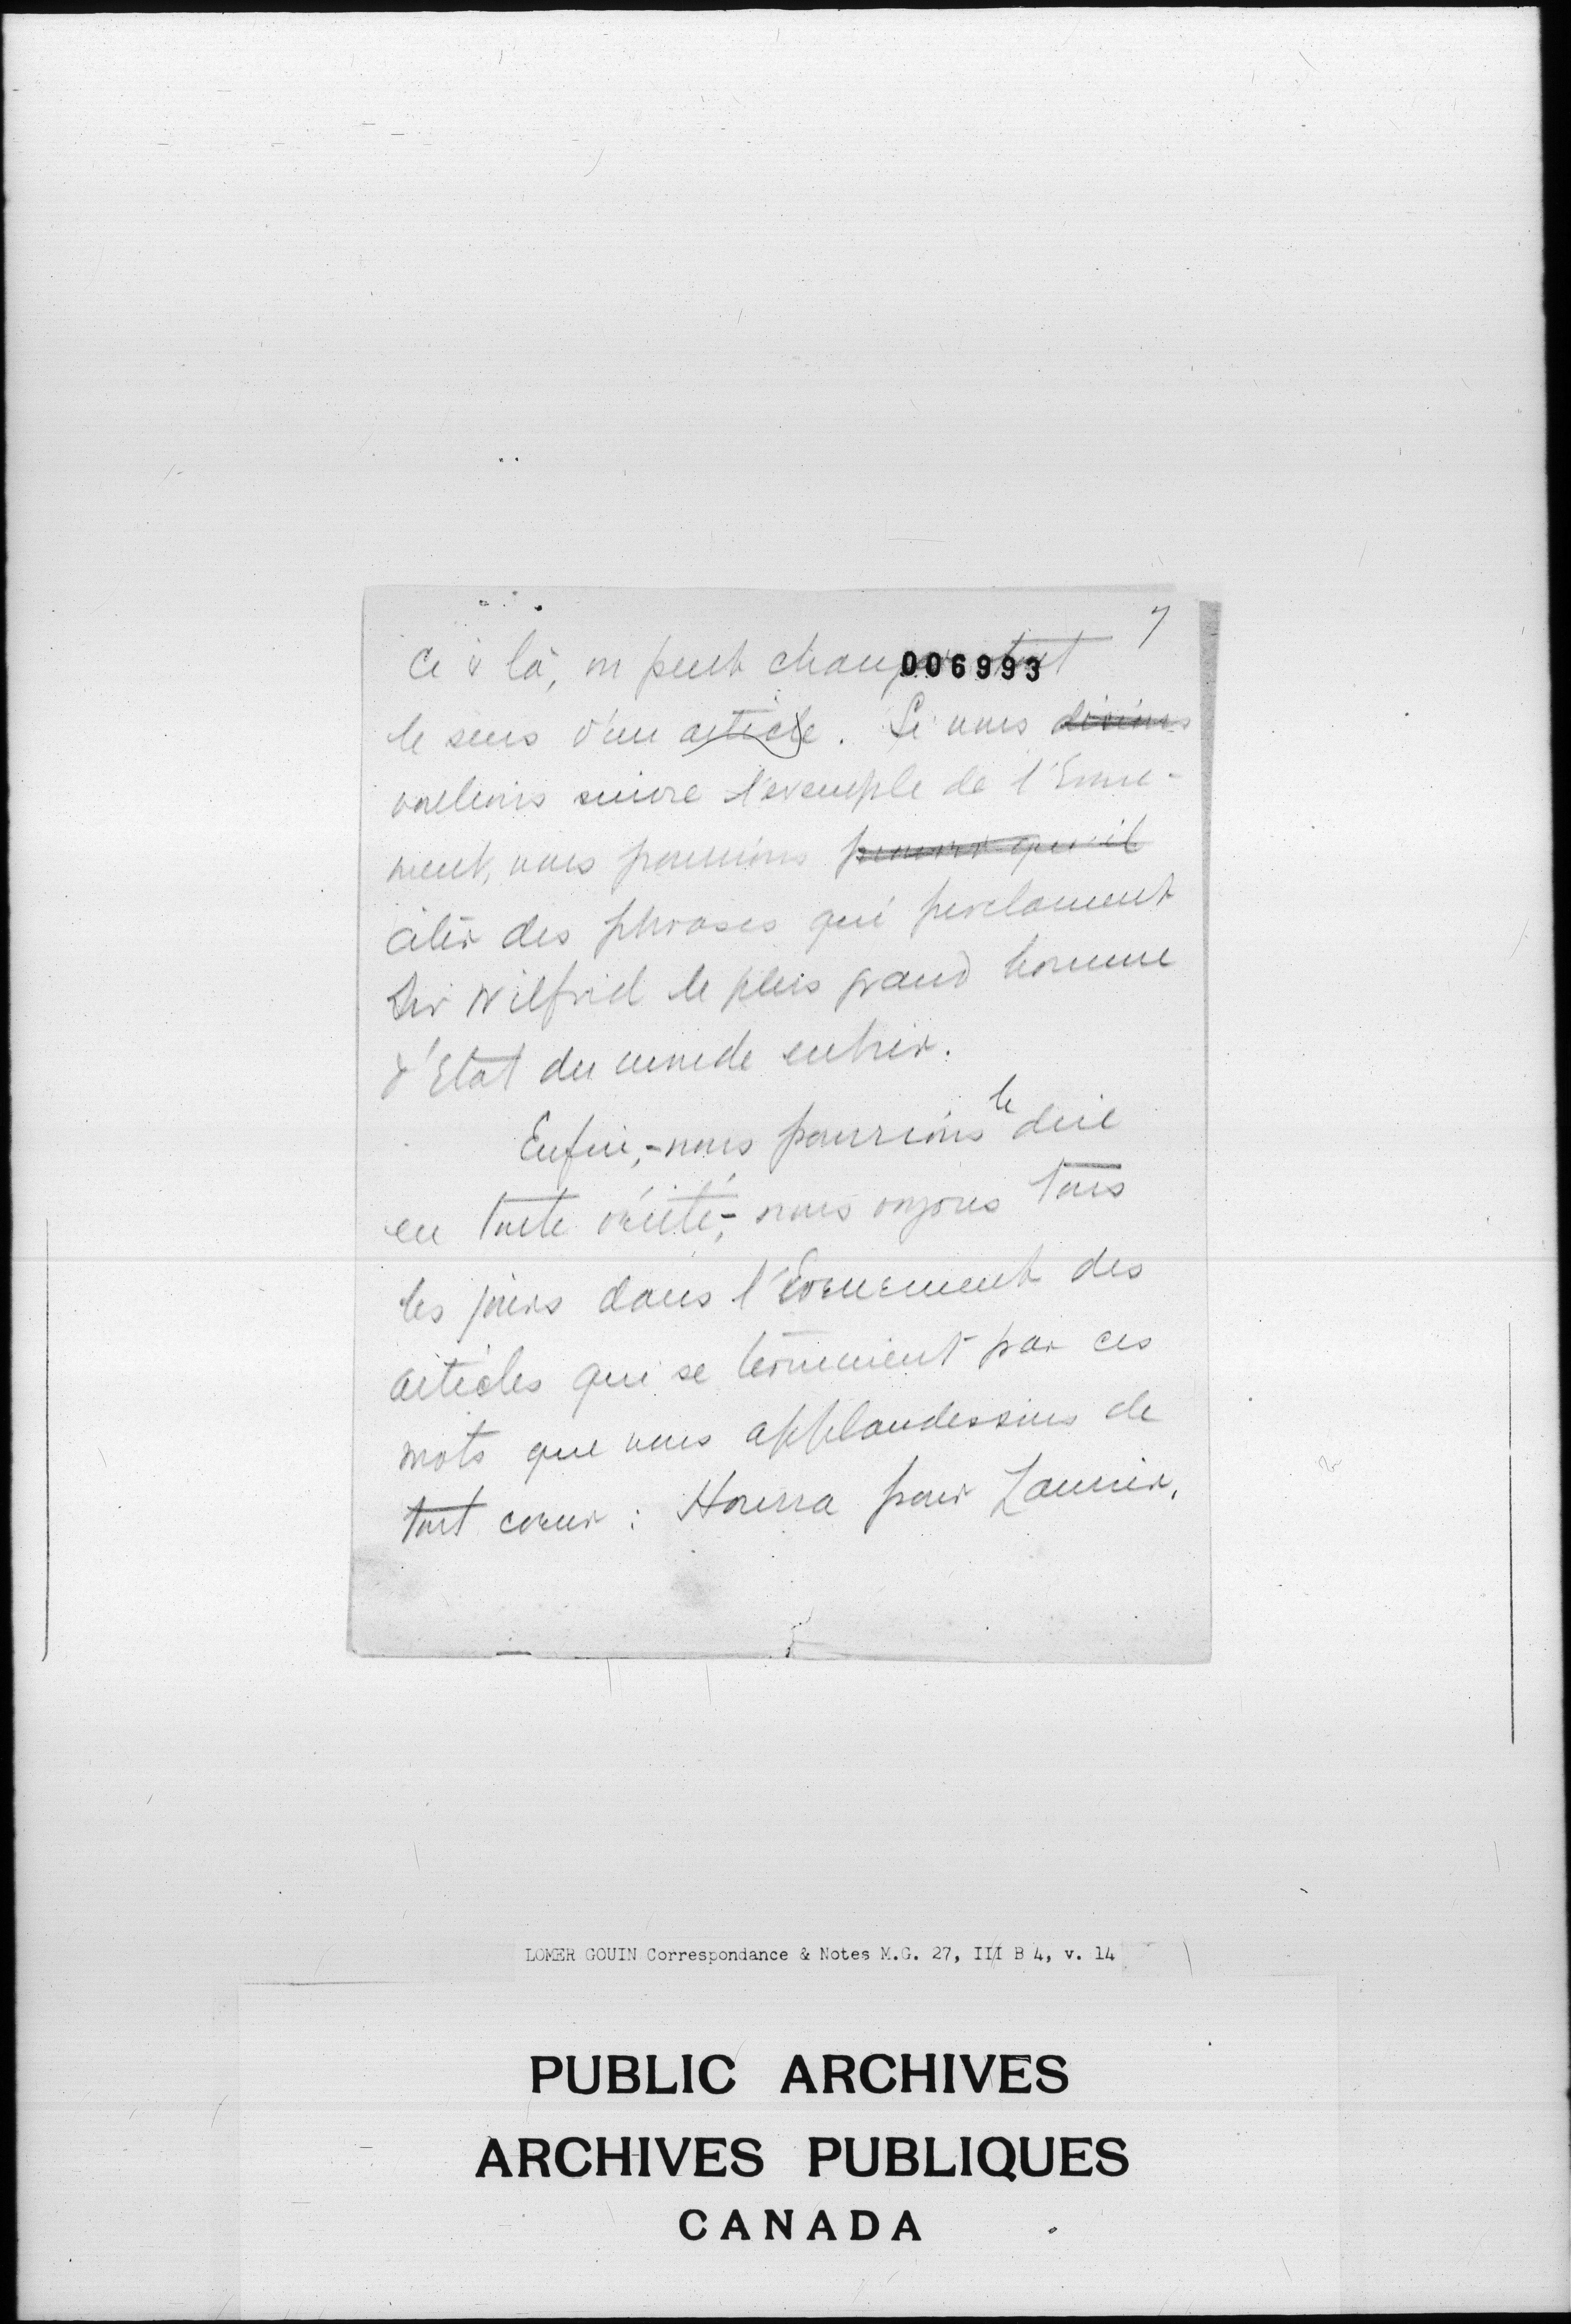 7
Ci & là, on peut changer tout
006993
le sens d'un article. Si nous disions
voulions suivre l'exemple de l'Evene-
ment, nous pourrions prouver qu'il
citer des phrases qui proclament
Sir Wilfrid le plus grand homme
d'Etat du monde entier.
Enfin,- nous pourrions le dire
en toute vérité,- nous voyons tous
les jours dans l'Evenement des
articles qui se terminent par ces
mots que nous applaudissons de
tout coeur : Hourra pour Laurier.
LOMER GOUIN Correspondance & Notes M.G. 27, III B 4, v. 14
PUBLIC ARCHIVES
ARCHIVES PUBLIQUES
CANADA